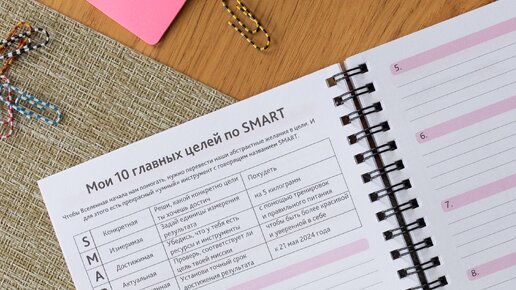 Мои 10 главных целей по SMART
Чтобы Вселенная начала нам помогать, нужно перевести наши абстрактные желания в цели. И
для этого есть прекрасный «умный» инструмент с говорящим названием SMART.
S Конкретная Реши, какой конкретно цели ты хочешь достич Похудеть
M Измеримая Задай единицы измерения результата на 5 килограмм
A Достижимая Убедись, что у тебя есть ресурсы и инструменты с помощью тренировок и правильного питания
Актуальная Проверь, соответствует ли цель твоей миссии чтобы быть более красивой и уверенной в себе
Установи точный срок достижения результата к 21 мая 2024 года
5.
6.
7.
8.